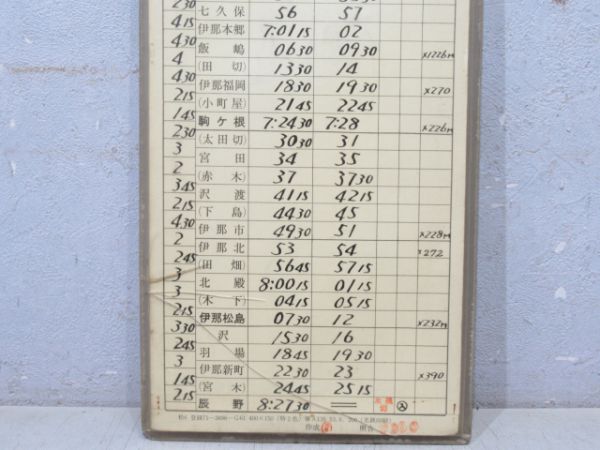 2 30
七久保 56 57
4 15
伊那本郷 7:01 15 02
4 30
飯嶋 06 30 09 30 ×1226M
4
(田切) 13 30 14
4 30
伊那福岡 18 30 19 30 ×270
2 15
(小町屋) 21 45 22 45
1 45
駒ケ根 7:24 30 7:28 ×226M
2 30
(太田切) 30 30 31
3
宮田 34 35
2
(赤木) 37 37 30
3 45
沢渡 41 15 42 15
2 15
(下島) 44 30 45
4 30
伊那市 49 30 51 ×228M
2
伊那北 53 54 ×272
2 45
(田畑) 56 45 57 15
3
北殿 8:00 15 01 15
3
(木下) 04 15 05 15
2 15
伊那松島 07 30 12 ×232M
3 30
沢 15 30 16
2 45
羽場 18 45 19 30
3
伊那新町 22 30 23 ×390
1 45
(宮木) 24 45 25 15
2 15
辰野 8:27 30 =
作成